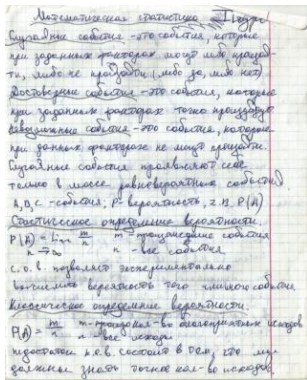 Математическая статистика I курс
Случайные события - это события, которые
при заданных факторах могут либо произой-
ти, либо не произойти (либо да, либо нет)
Достоверные события - это события, которые
при заданных факторах точно произойдут
Невозможные события - это события, которые
при данных факторах не могут произойти.
Случайные события проявляют себя
только в массе равновероятных событий.
A, B, C - события, P - вероятность, P(A)
Статистическое определение вероятности.
P(A) = lim m/n m - произошедшие события
n→∞ n - все события
с.о.в. позволяет экспериментально
вычислить вероятность того события
Классическое определение вероятности:
P(A) = m/n m - кол-во благоприятных исходов
n - все исходы
недостаток к.о.в. состоит в том, что мы
должны знать точное кол-во исходов